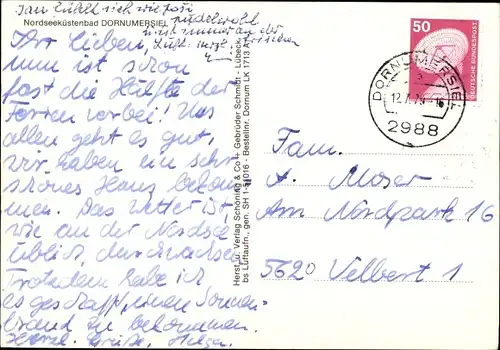 Jan fühlt sich wie so'n
Nordseeküstenbad DORNUMERSIEL
pudelwohl
und immer an der
frischen
Luft.
Ihr Lieben,
nun ist schon
fast die Hälfte der
Ferien vorbei! Uns
allen geht es gut,
wir haben ein sehr
schönes Haus bekom-
men. Das Wetter ist
wie an der Nordsee
üblich, durchwachsen
Trotzdem habe ich
es geschafft, einen Sonnen-
brand zu bekommen.
Herzl. Grüße, Helga.
Herst. u. Verlag Schöning & Co + Gebrüder Schmidt, Lübeck
bs Luftaufn., gen. SH 1-51016 - Bestellnr. Dornum LK 1713 A
50
DEUTSCHE BUNDESPOST
DORNUMERSIEL
2988
Fam.
A. Moser
Am Nordpark 16
5620 Velbert 1